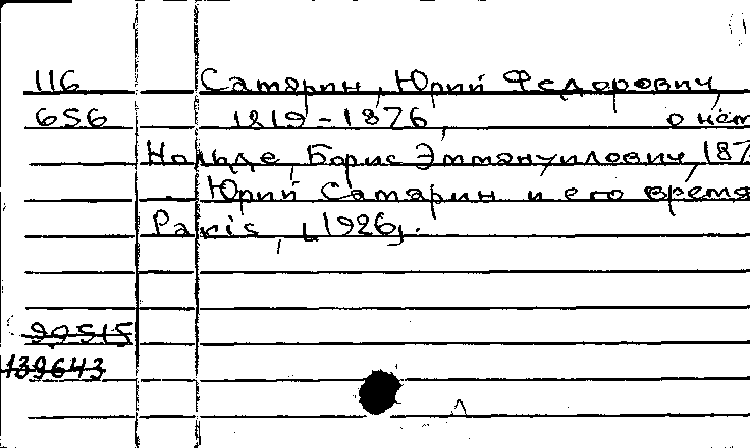 116 Самарин, Юрий Федорович,
656 1819-1876, о нем
Нольде, Борис Эммануилович, 187
Юрий Самарин и его время
Paris, [1926].
99515
139643